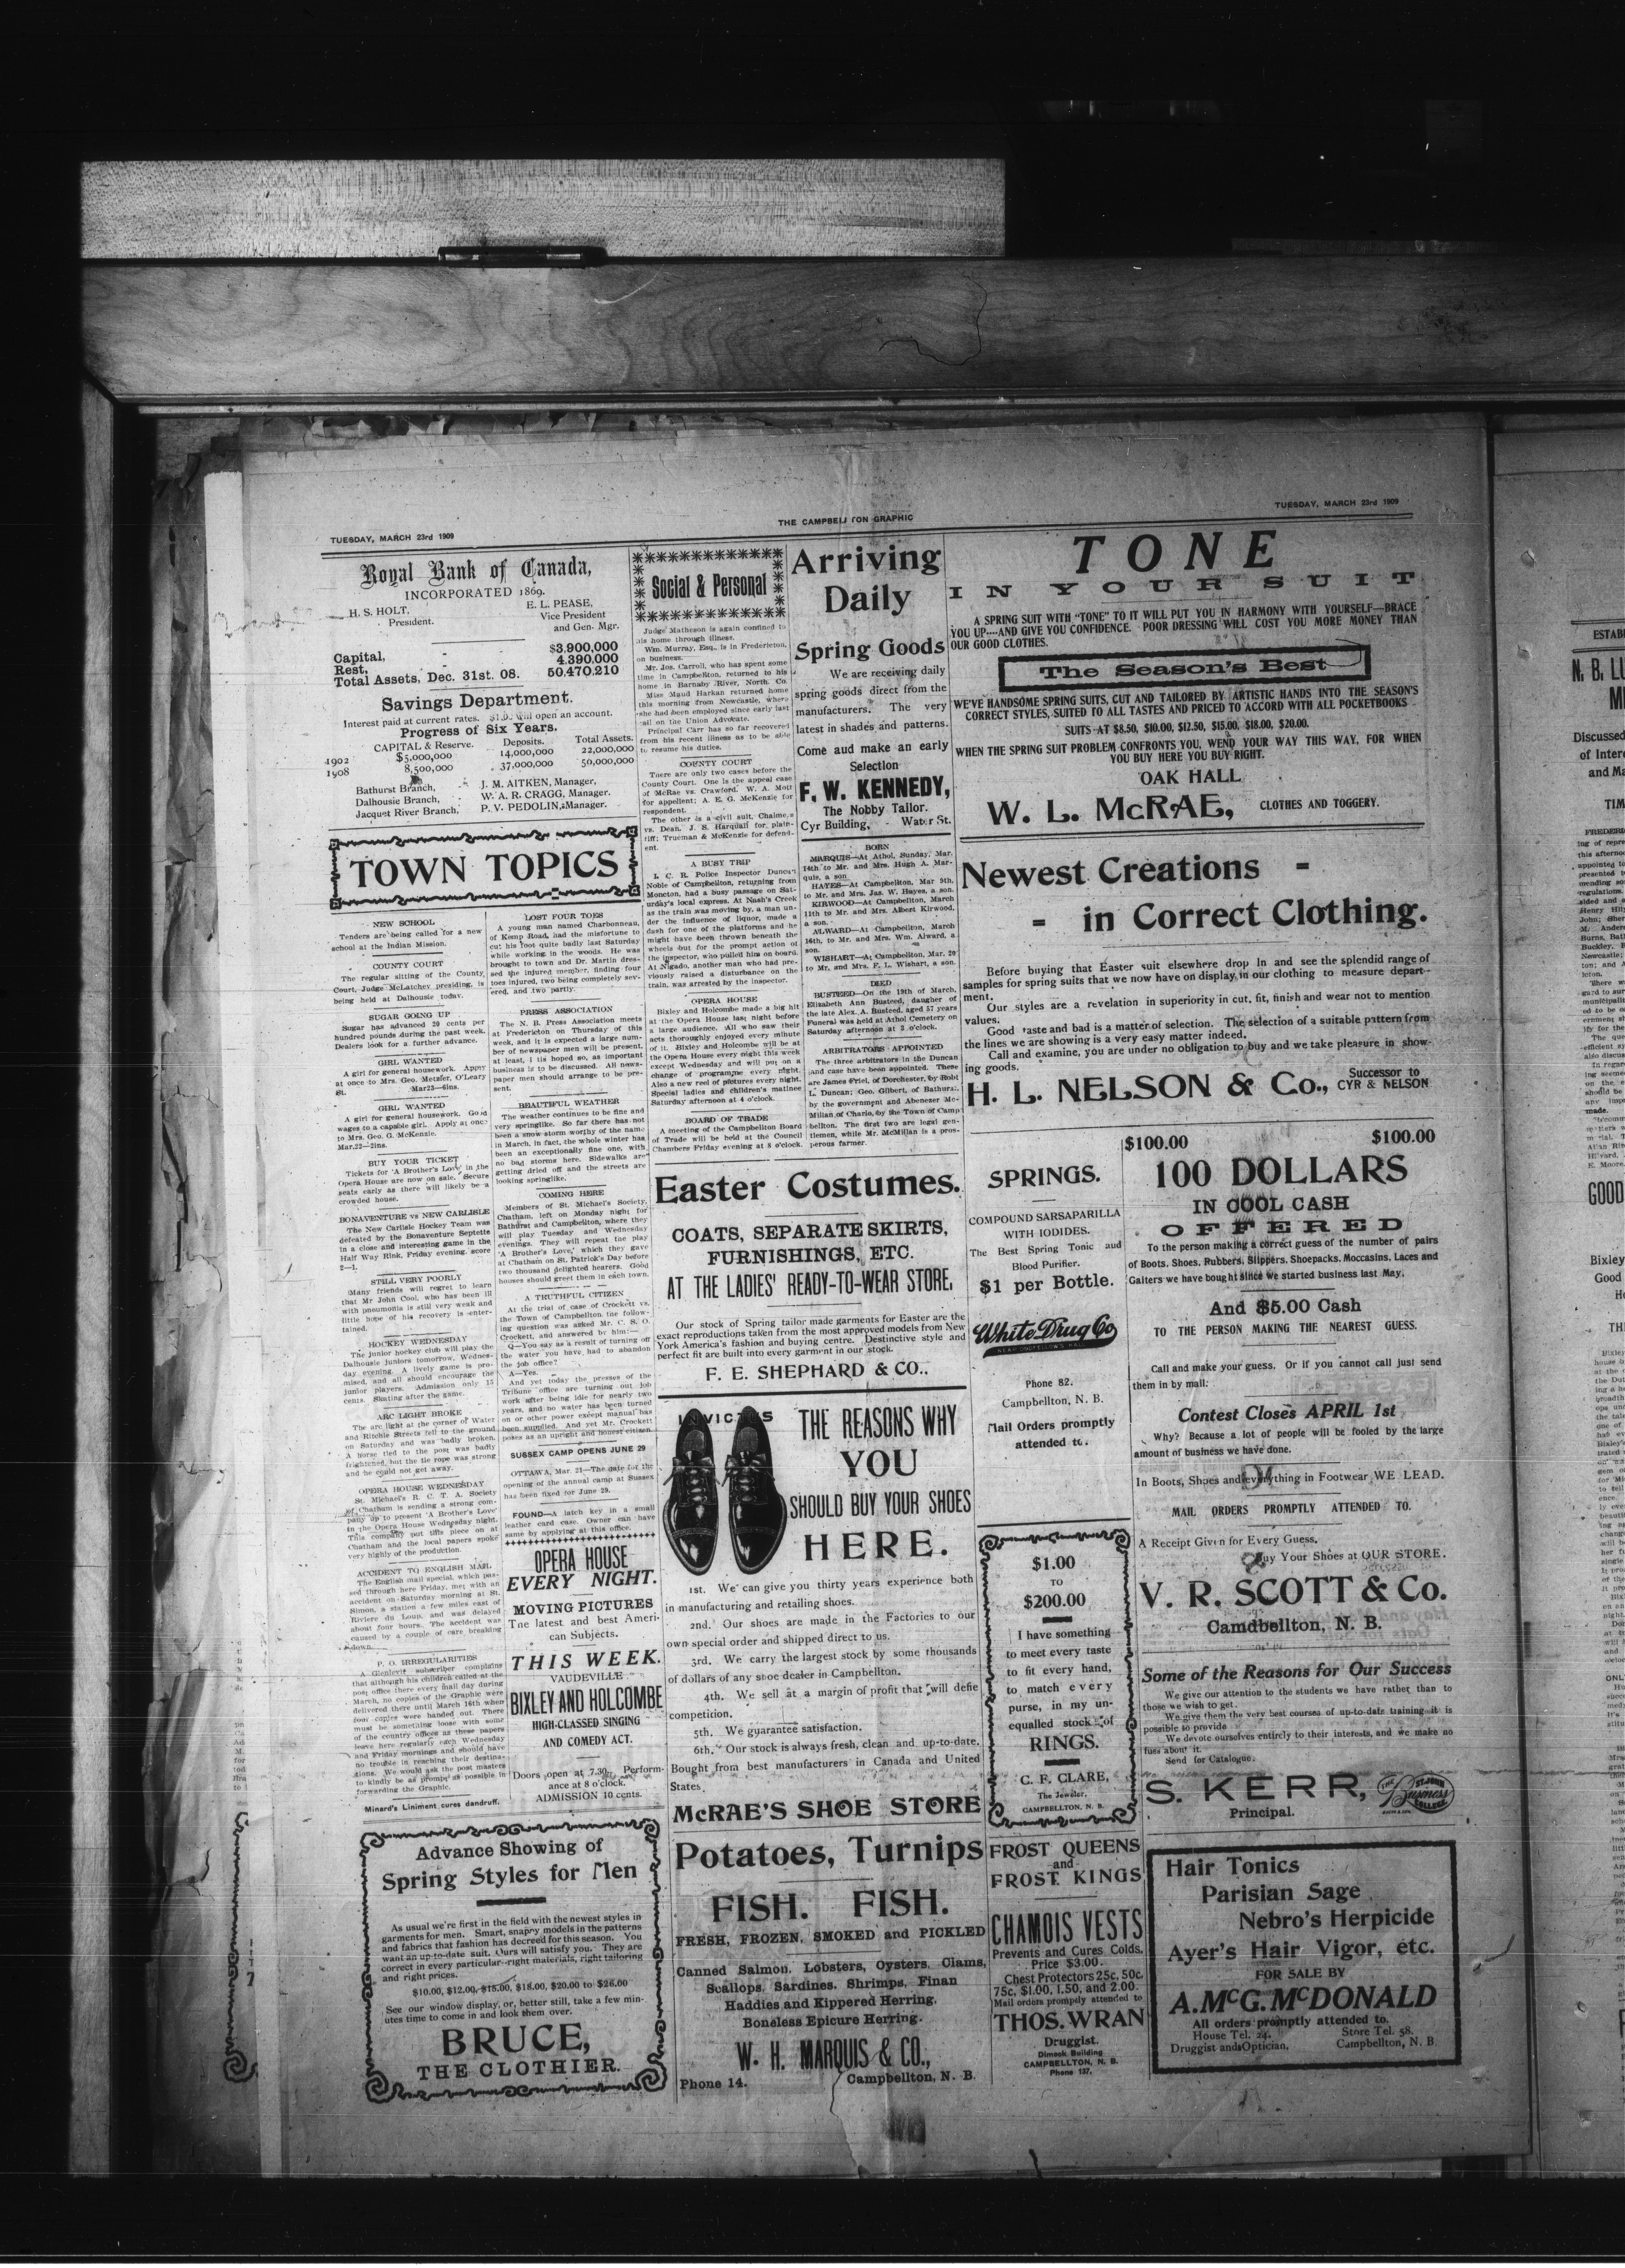 TUESDAY, MARCH 23rd 1909
THE CAMPBELLTON GRAPHIC
TUESDAY, MARCH 23rd 1909
Royal Bank of Canada,
INCORPORATED 1869.
H. S. HOLT,
President.
E. L. PEASE,
Vice President
and Gen. Mgr.
Capital, - - $3.900,000
Rest, - - 4.390.000
Total Assets, Dec. 31st. 08. 50.470.210
Savings Department.
Interest paid at current rates. $1.00 will open an account.
Progress of Six Years.
CAPITAL & Reserve. Deposits. Total Assets.
1902 $5,000,000 14,000,000 22,000,000
1908 8,500,000 37,000,000 50,000,000
Bathurst Branch, - J. M. AITKEN, Manager.
Dalhousie Branch, - W. A. R. CRAGG, Manager.
Jacquet River Branch, P. V. PEDOLIN, Manager.
TOWN TOPICS
NEW SCHOOL
Tenders are being called for a new
school at the Indian Mission.
COUNTY COURT
The regular sitting of the County
Court, Judge McLatchey presiding, is
being held at Dalhousie today.
SUGAR GOING UP
Sugar has advanced 20 cents per
hundred pounds during the past week.
Dealers look for a further advance.
GIRL WANTED
A girl for general housework. Apply
at once to Mrs. Geo. Metzler, O'Leary
St. Mar23—6ins.
GIRL WANTED
A girl for general housework. Good
wages to a capable girl. Apply at once
to Mrs. Geo. G. McKenzie.
Mar.22—2ins.
BUY YOUR TICKET
Tickets for 'A Brother's Love' in the
Opera House are now on sale. Secure
seats early as there will likely be a
crowded house.
BONAVENTURE vs NEW CARLISLE
The New Carlisle Hockey Team was
defeated by the Bonaventure Septette
in a close and interesting game in the
Half Way Rink, Friday evening, score
2—1.
STILL VERY POORLY
Many friends will regret to learn
that Mr John Cool, who has been ill
with pneumonia is still very weak and
little hope of his recovery is enter-
tained.
HOCKEY WEDNESDAY
The junior hockey club will play the
Dalhousie juniors tomorrow, Wednes-
day evening. A lively game is pro-
mised, and all should encourage the
junior players. Admission only 15
cents. Skating after the game.
ARC LIGHT BROKE
The arc light at the corner of Water
and Ritchie Streets fell to the ground
on Saturday and was badly broken.
A horse tied to the post was badly
frightened, but the tie rope was strong
and he could not get away.
OPERA HOUSE WEDNESDAY
St. Michael's R. C. T. A. Society
of Chatham is sending a strong com-
pany up to present 'A Brother's Love'
in the Opera House Wednesday night.
This company put this piece on at
Chatham and the local papers spoke
very highly of the production.
ACCIDENT TO ENGLISH MAIL
The English mail special, which pas-
sed through here Friday, met with an
accident on Saturday morning at St.
Simon, a station a few miles east of
Riviere du Loup, and was delayed
about four hours. The accident was
caused by a couple of cars breaking
down.
P. O. IRREGULARITIES
A Glenlevit subscriber complains
that although his children called at the
post office there every mail day during
March, no copies of the Graphic were
delivered there until March 16th when
four copies were handed out. There
must be something loose with some
of the country offices as these papers
leave here regularly each Wednesday
and Friday mornings and should have
no trouble in reaching their destina-
tions. We would ask the post masters
to kindly be as prompt as possible in
forwarding the Graphic.
Minard's Liniment cures dandruff.
LOST FOUR TOES
A young man named Charbonneau,
of Kemp Road, had the misfortune to
cut his foot quite badly last Saturday
while working in the woods. He was
brought to town and Dr. Martin dres-
sed the injured member, finding four
toes injured, two being completely sev-
ered, and two partly.
PRESS ASSOCIATION
The N. B. Press Association meets
at Fredericton on Thursday of this
week, and it is expected a large num-
ber of newspaper men will be present,
at least, it is hoped so, as important
business is to be discussed. All news-
paper men should arrange to be pre-
sent.
BEAUTIFUL WEATHER
The weather continues to be fine and
very springlike. So far there has not
been a snow storm worthy of the name
in March, in fact, the whole winter has
been an exceptionally fine one, with
no bad storms here. Sidewalks are
getting dried off and the streets are
looking springlike.
COMING HERE
Members of St. Michael's Society,
Chatham, left on Monday night for
Bathurst and Campbellton, where they
will play Tuesday and Wednesday
evenings. They will repeat the play
'A Brother's Love,' which they gave
at Chatham on St. Patrick's Day before
two thousand delighted hearers. Good
houses should greet them in each town.
A TRUTHFUL CITIZEN
At the trial of case of Crockett vs.
the Town of Campbellton the follow-
ing question was asked Mr. C. S. O.
Crockett, and answered by him:—
Q—You say as a result of turning off
the water you have had to abandon
the job office?
A—Yes.
And yet today the presses of the
Tribune office are turning out job
work after being idle for nearly two
years, and no water has been turned
on or other power except manual has
been supplied. And yet Mr. Crockett
poses as an upright and honest citizen.
SUSSEX CAMP OPENS JUNE 29
OTTAWA, Mar. 21—The date for the
opening of the annual camp at Sussex
has been fixed for June 29.
FOUND—A latch key in a small
leather card case. Owner can have
same by applying at this office.
OPERA HOUSE
EVERY NIGHT.
MOVING PICTURES
The latest and best Ameri-
can Subjects.
THIS WEEK.
VAUDEVILLE
BIXLEY AND HOLCOMBE
HIGH-CLASSED SINGING
AND COMEDY ACT.
Doors open at 7.30. Perform-
ance at 8 o'clock.
ADMISSION 10 cents.
Advance Showing of
Spring Styles for Men
As usual we're first in the field with the newest styles in
garments for men. Smart, snappy models in the patterns
and fabrics that fashion has decreed for this season. You
want an up-to-date suit. Ours will satisfy you. They are
correct in every particular—right materials, right tailoring
and right prices.
$10.00, $12.00, $15.00, $18.00, $20.00 to $26.00
See our window display, or, better still, take a few min-
utes time to come in and look them over.
BRUCE,
THE CLOTHIER.
Social & Personal
Judge Matheson is again confined to
his home through illness.
Wm. Murray, Esq., is in Fredericton,
on business.
Mr. Jos. Carroll, who has spent some
time in Campbellton, returned to his
home in Barnaby River, North. Co.
Miss Maud Harkan returned home
this morning from Newcastle, where
she had been employed since early last
fall on the Union Advocate.
Principal Carr has so far recovered
from his recent illness as to be able
to resume his duties.
COUNTY COURT
There are only two cases before the
County Court. One is the appeal case
of McRae vs. Crawford. W. A. Mott
for appellent; A. E. G. McKenzie for
respondent.
The other is a civil suit, Chaimes
vs. Dean. J. S. Harquail for plain-
tiff; Trueman & McKenzie for defend-
ent.
A BUSY TRIP
I. C. R. Police Inspector Duncan
Noble of Campbellton, returning from
Moncton, had a busy passage on Sat-
urday's local express. At Nash's Creek
as the train was moving by, a man un-
der the influence of liquor, made a
dash for one of the platforms and he
might have been thrown beneath the
wheels but for the prompt action of
the inspector, who pulled him on board.
At Nigado, another man who had pre-
viously raised a disturbance on the
train, was arrested by the inspector.
OPERA HOUSE
Bixley and Holcombe made a big hit
at the Opera House last night before
a large audience. All who saw their
acts thoroughly enjoyed every minute
of it. Bixley and Holcombe will be at
the Opera House every night this week
except Wednesday and will put on a
change of programme every night.
Also a new reel of pictures every night.
Special ladies and children's matinee
Saturday afternoon at 4 o'clock.
BOARD OF TRADE
A meeting of the Campbellton Board
of Trade will be held at the Council
Chambers Friday evening at 8 o'clock.
Arriving
Daily
Spring Goods
We are receiving daily
spring goods direct from the
manufacturers. The very
latest in shades and patterns.
Come aud make an early
Selection
F. W. KENNEDY,
The Nobby Tailor.
Cyr Building, - Water St.
BORN
MARQUIS—At Athol, Sunday, Mar.
14th to Mr. and Mrs. Hugh A. Mar-
quis, a son.
HAYES—At Campbellton, Mar 9th,
to Mr. and Mrs. Jas. W. Hayes, a son.
KIRWOOD—At Campbellton, March
11th to Mr. and Mrs. Albert Kirwood,
a son.
ALWARD—At Campbellton, March
16th, to Mr. and Mrs. Wm. Alward, a
son.
WISHART—At Campbellton, Mar. 20
to Mr. and Mrs. F. L. Wishart, a son.
DIED
BUSTEED—On the 19th of March,
Elizabeth Ann Busteed, daugher of
the late Alex. A. Busteed, aged 57 years
Funeral was held at Athol Cemetery on
Saturday afternoon at 3 o'clock.
ARBITRATORS APPOINTED
The three arbitrators in the Duncan
land case have been appointed. These
are James Friel, of Dorchester, by Robt
L. Duncan; Geo. Gilbert, of Bathurst,
by the government and Abenezer Mc-
Millan of Charlo, by the Town of Camp
bellton. The first two are legal gen-
tlemen, while Mr. McMillan is a pros-
perous farmer.
Easter Costumes.
COATS, SEPARATE SKIRTS,
FURNISHINGS, ETC.
AT THE LADIES' READY-TO-WEAR STORE.
Our stock of Spring tailor made garments for Easter are the
exact reproductions taken from the most approved models from New
York America's fashion and buying centre. Destinctive style and
perfect fit are built into every garment in our stock.
F. E. SHEPHARD & CO..
INVICTUS
THE REASONS WHY
YOU
SHOULD BUY YOUR SHOES
HERE.
1st. We can give you thirty years experience both
in manufacturing and retailing shoes.
2nd. Our shoes are made in the Factories to our
own special order and shipped direct to us.
3rd. We carry the largest stock by some thousands
of dollars of any shoe dealer in Campbellton.
4th. We sell at a margin of profit that will defie
competition.
5th. We guarantee satisfaction.
6th. Our stock is always fresh, clean and up-to-date.
Bought from best manufacturers in Canada and United
States.
McRAE'S SHOE STORE
Potatoes, Turnips
FISH. FISH.
FRESH, FROZEN, SMOKED and PICKLED
Canned Salmon, Lobsters, Oysters, Clams,
Scallops, Sardines, Shrimps, Finan
Haddies and Kippered Herring,
Boneless Epicure Herring.
W. H. MARQUIS & CO.,
Phone 14. Campbellton, N. B.
TONE
IN YOUR SUIT
A SPRING SUIT WITH "TONE" TO IT WILL PUT YOU IN HARMONY WITH YOURSELF—BRACE
YOU UP----AND GIVE YOU CONFIDENCE. POOR DRESSING WILL COST YOU MORE MONEY THAN
OUR GOOD CLOTHES.
The Season's Best
WE'VE HANDSOME SPRING SUITS, CUT AND TAILORED BY ARTISTIC HANDS INTO THE SEASON'S
CORRECT STYLES, SUITED TO ALL TASTES AND PRICED TO ACCORD WITH ALL POCKETBOOKS
SUITS AT $8.50, $10.00, $12.50, $15.00, $18.00, $20.00.
WHEN THE SPRING SUIT PROBLEM CONFRONTS YOU, WEND YOUR WAY THIS WAY, FOR WHEN
YOU BUY HERE YOU BUY RIGHT.
OAK HALL
W. L. McRAE, CLOTHES AND TOGGERY.
Newest Creations -
- in Correct Clothing.
Before buying that Easter suit elsewhere drop in and see the splendid range of
samples for spring suits that we now have on display in our clothing to measure depart-
ment.
Our styles are a revelation in superiority in cut, fit, finish and wear not to mention
values.
Good taste and bad is a matter of selection. The selection of a suitable pattern from
the lines we are showing is a very easy matter indeed.
Call and examine, you are under no obligation to buy and we take pleasure in show-
ing goods.
H. L. NELSON & Co., Successor to
CYR & NELSON
SPRINGS.
COMPOUND SARSAPARILLA
WITH IODIDES.
The Best Spring Tonic aud
Blood Purifier.
$1 per Bottle.
White Drug Co
NEAR ODDFELLOW'S HALL
Phone 82.
Campbellton, N. B.
Mail Orders promptly
attended to.
$1.00
TO
$200.00
I have something
to meet every taste
to fit every hand,
to match every
purse, in my un-
equalled stock of
RINGS.
C. F. CLARE,
The Jeweler,
CAMPBELLTON, N. B.
FROST QUEENS
and
FROST KINGS
CHAMOIS VESTS
Prevents and Cures Colds.
Price $3.00.
Chest Protectors 25c, 50c.
75c, $1.00, 1.50, and 2.00.
Mail orders promptly attended to
THOS. WRAN
Druggist.
Dimock Building
CAMPBELLTON, N. B.
Phone 137.
$100.00 $100.00
100 DOLLARS
IN COOL CASH
OFFERED
To the person making a correct guess of the number of pairs
of Boots, Shoes, Rubbers, Slippers, Shoepacks, Moccasins, Laces and
Gaiters we have bought since we started business last May.
And $5.00 Cash
TO THE PERSON MAKING THE NEAREST GUESS.
Call and make your guess, Or if you cannot call just send
them in by mail:
Contest Closes APRIL 1st
Why? Because a lot of people will be fooled by the large
amount of business we have done.
In Boots, Shoes and everything in Footwear WE LEAD.
MAIL ORDERS PROMPTLY ATTENDED TO.
A Receipt Given for Every Guess.
Buy Your Shoes at OUR STORE.
V. R. SCOTT & Co.
Camdbellton, N. B.
Some of the Reasons for Our Success
We give our attention to the students we have rather than to
those we wish to get.
We give them the very best courses of up-to-date training it is
possible to provide
We devote ourselves entirely to their interests, and we make no
fuss about it.
Send for Catalogue.
S. KERR,
Principal.
THE ST. JOHN
Business
COLLEGE
Hair Tonics
Parisian Sage
Nebro's Herpicide
Ayer's Hair Vigor, etc.
FOR SALE BY
A. McG. McDONALD
All orders promptly attended to.
House Tel. 24. Store Tel. 58.
Druggist and Optician, Campbellton, N. B
ESTAB
N. B. LU
Discussed
of Inter
and Ma
TIM
GOOD
Bixley
Good